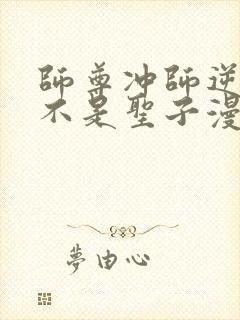 師尊冲師逆
不是聖子漫
夢由心